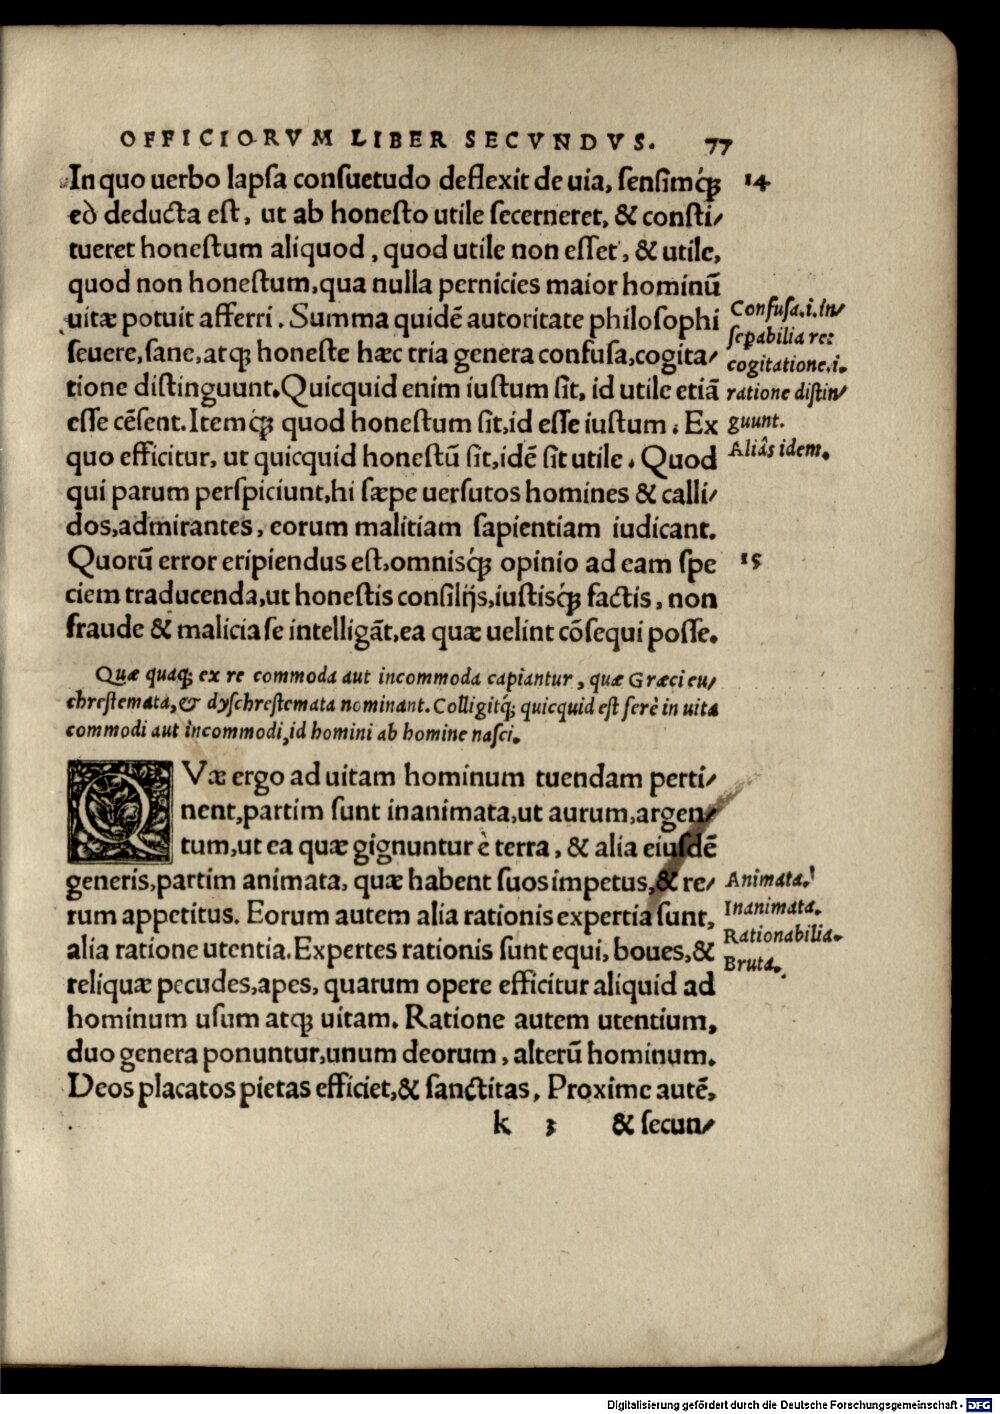 OFFICIORVM LIBER SECVNDVS. 77
In quo uerbo lapſa conſuetudo deflexit de uia, ſenſimq́ꝫ 14
eò deducta eſt, ut ab honeſto utile ſecerneret, & conſti/
tueret honeſtum aliquod, quod utile non eſſet, & utile,
quod non honeſtum, qua nulla pernicies maior hominũ
uitæ potuit afferri. Summa quidẽ autoritate philoſophi
ſeuere, ſane, atqꝫ honeſte hæc tria genera confuſa, cogita/
tione diſtinguunt. Quicquid enim iuſtum ſit, id utile etiã
eſſe cẽſent. Itemq́ꝫ quod honeſtum ſit, id eſſe iuſtum. Ex
quo efficitur, ut quicquid honeſtũ ſit, idẽ ſit utile. Quod
qui parum perſpiciunt, hi ſæpe uerſutos homines & calli/
dos, admirantes, eorum malitiam ſapientiam iudicant.
Quorũ error eripiendus eſt, omnisq́ꝫ opinio ad eam ſpe 15
ciem traducenda, ut honeſtis conſilijs, iuſtisq́ꝫ factis, non
fraude & malicia ſe intelligãt, ea quæ uelint cõſequi poſſe.
Confuſa.i.in/
ſepabilia re:
cogitatione.i.
ratione diſtin/
guunt.
Aliâs idem.
Quæ quaqꝫ ex re commoda aut incommoda capiantur, quæ Græci eu/
chreſtemata, & dyſchreſtemata nominant. Colligitq́ꝫ quicquid eſt ferè in uita
commodi aut incommodi, id homini ab homine naſci.
QVæ ergo ad uitam hominum tuendam perti/
nent, partim ſunt inanimata, ut aurum, argen/
tum, ut ea quæ gignuntur è terra, & alia eiuſdẽ
generis, partim animata, quæ habent ſuos impetus, & re/
rum appetitus. Eorum autem alia rationis expertia ſunt,
alia ratione utentia. Expertes rationis ſunt equi, boues, &
reliquæ pecudes, apes, quarum opere efficitur aliquid ad
hominum uſum atqꝫ uitam. Ratione autem utentium,
duo genera ponuntur, unum deorum, alterũ hominum.
Deos placatos pietas efficiet, & ſanctitas. Proxime autẽ,
Animata.
Inanimata.
Rationabilia.
Bruta.
k 3 & ſecun/
Digitalisierung gefördert durch die Deutsche Forschungsgemeinschaft - DFG